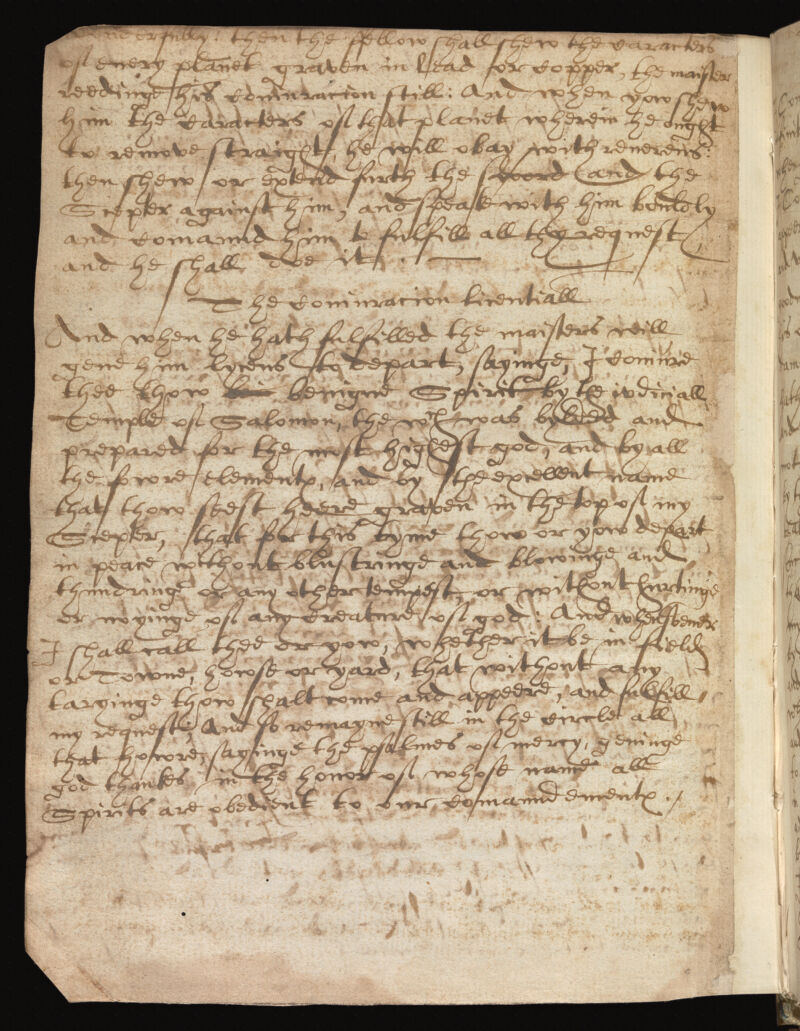 then the fellow shall shew the caracters
of every planet graven in lead or copper, the maister
reedinge his coniuracion still: And when yow shew
him the caracters of that planet wherein he ought
to remove straight, he will obay with reverens:
then shew or extend furth the sword and the
Scepter against him, and speak with him bouldly
and comaund him to fulfill all thy request
and he shall doe it.
The coniuracion licentiall
And when he hath fulfilled the maisters will
geve him lycens to depart, sayinge, I coniure
thee thow benigne Spirit by the iudiciall
Temple of Salomon, the wch was bylded and
prepared for the most highest god, and by all
the fowre elementes, and by the excellent name
that thow seest heere graven in the top of my
Scepter, that for this tyme thow or yow depart
in peace without blustringe and blowinge and
thundringe or any other tempest or without hurtinge
or noyinge of any creature of god: And whensoever
I shall call thee or yow, whether it be in field
or Towne, howse or yard, that without any
taryinge thow shalt come and appeere, and fullfill
my request; And so remayne still in the circle all
that howre, sayinge the psalmes of mercy, gevinge
god thankes in the honor of whose name all
Spirits are obedient to our comaundementes.